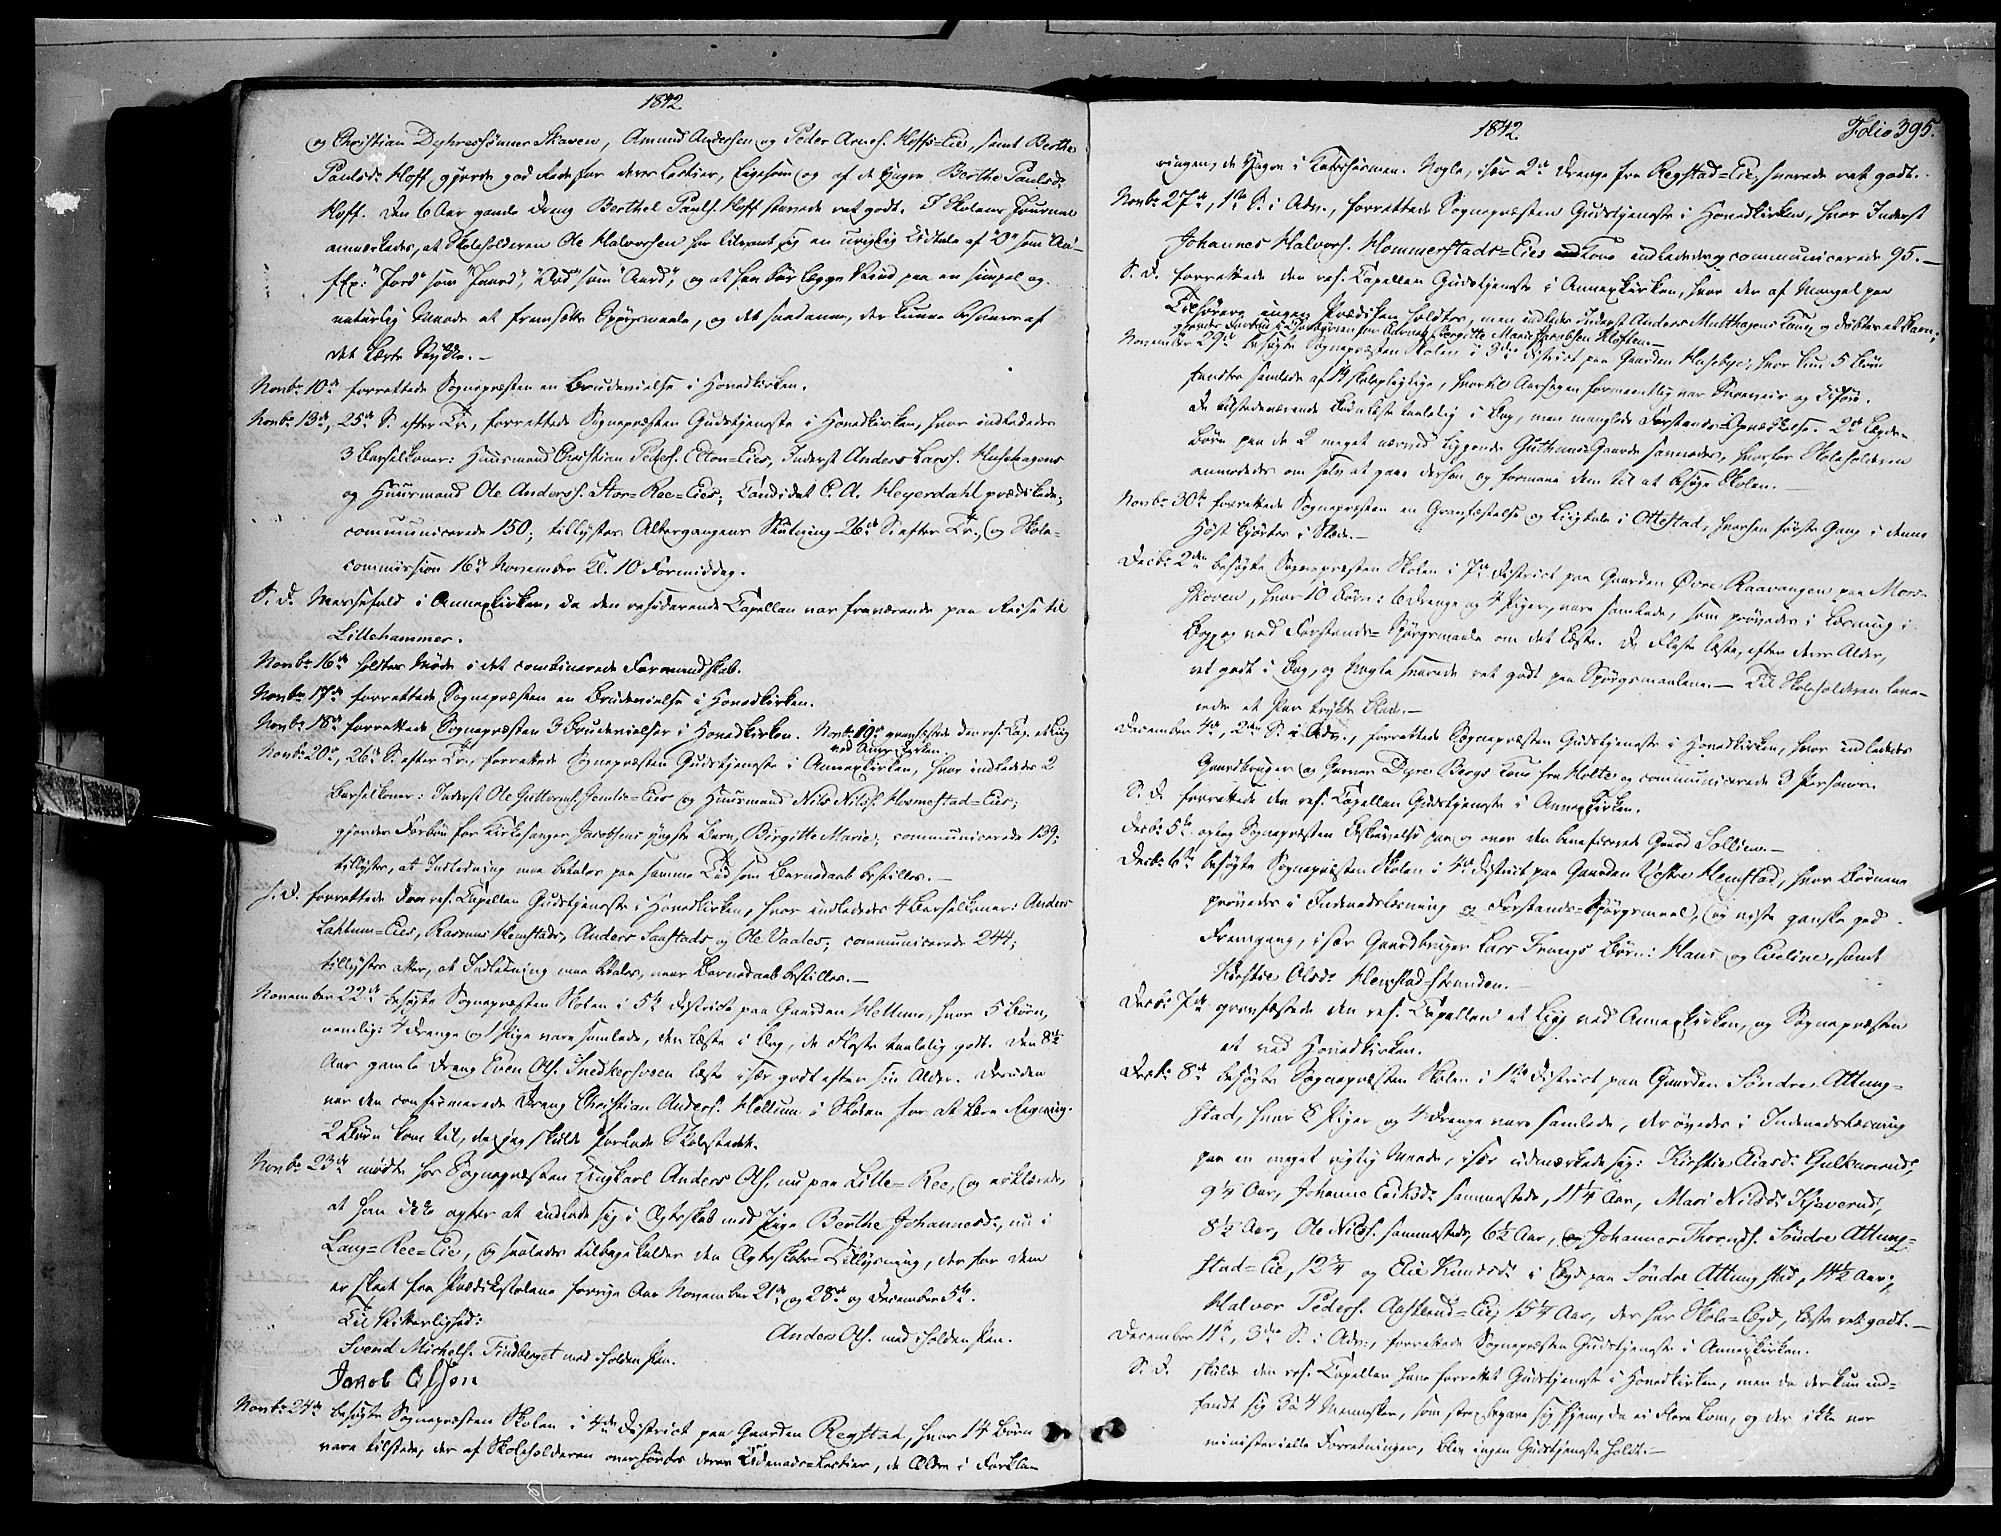 1842.
og Christian Dyhresønner Skaven, Amund Andersen og Peder Arnes. Hoffs=Eie, samt Berthe
Paulsdr. Hoff gjorde god Rede for deres Lectier, ligesom og af de yngre Berthe Paulsdr.
Hoff. Den 6 Aar gamle Dreng Berthel Pauls. Hoff stavede ret godt. I Skolens Journal
anmærkedes, at Skoleholderen Ole Halvorsen har tilvant sig en urigtig Udtale af "O" som "Au"
f. Ex: "Jord" som "Jaurd", "Ord" som "Aurd", og at han bør lægge Vind paa en simpel og
naturlig Maade at fremsætte Spørgsmaale, og det saadanne, der kunne besvares af
det læste Stykke.—
Novbr. 10de forrettede Sognepræsten en Brudevielse i Hovedkirken.
Novbr. 13de, 25de S. efter Tr., forrettede Sognepræsten Gudstjeneste i Hovedkirken, hvor indlededes
3 Barselkoner: Huusmand Christian Peders. Elton=Eies, Inderst Anders Larss. Husehagens
og Huusmand Ole Anderss. Stor=Ree=Eies; Candidat C. A. Heyerdahl prædikede;
communicerede 150; tillystes Altergangens Slutning 26de S. efter Tr., og Skole-
commission 16de November Kl. 10 Formiddag.
S. D. Messefald i Annexkirken, da den residerende Capellan var fraværende paa Reise til
Lillehammer.
Novbr. 16de holdtes Møde i det combinerede Formandskab.
Novbr. 17de forrettede Sognepræsten en Brudevielse i Hovedkirken.
Novbr. 18de forrettede Sognepræsten 3 Brudevielser i Hovedkirken. Novbr. 19de gravfæstede den res. Cap. et Liig
ved Annexkirken.
Novbr. 20de, 26de S. efter Tr., forrettede Sognepræsten Gudstjeneste i Annexkirken, hvor indlededes 2
Barselkoner: Inderst Ole Guttorms. Jemlie=Eies og Huusmand Nils Nilss. Homestad=Eies;
gjordes Forbøn for Kirkesanger Jacobsens yngste Barn, Birgitte Marie; communicerede 139;
tillystes, at Indledning maa betales paa samme Tid som Barnedaab bestilles.—
S. D. forrettede den res. Capellan Gudstjeneste i Hovedkirken, hvor indlededes 4 Barselkoner: Anders
Lahlum=Eies, Rasmus Hemstads, Anders Saustads og Ole Vaales; communicerede 244;
tillystes atter, at Indledning maa betales, naar Barnedaab bestilles.—
November 22de besøgte Sognepræsten Skolen i 5te District paa Gaarden Hellum, hvor 5 Børn,
nemlig: 4 Drenge og 1 Pige vare samlede, der læste i Bog, de Fleste taalelig godt. Den 8½
Aar gamle Dreng Even Ols. Snedkersveen læste især godt efter sin Alder. Desuden
var den confirmerede Dreng Christian Anders. Hellum i Skolen for at lære Regning.
2 Børn kom til, da jeg skulde forlade Skolestedet.
Novbr. 23de mødte hos Sognepræsten Ungkarl Anders Ols. nu paa Lille=Ree, og erklærede,
at han ikke agter at indlade sig i Ægteskab med Pige Berthe Johannesdr., nu i
Laug=Ree=Eie, og saaledes tilbagekalder den Ægteskabs Tillysning, der for dem
er skeet fra Prædikestolene forrige Aar November 21de og 28de og December 5te.
Til Vitterlighed:
Anders Ols. med iholden Pen.
Svend Michels. Findberget med iholden Pen.
Jacob Olsen
Novbr. 24de besøgte Sognepræsten Skolen i 4de District paa Gaarden Regstad, hvor 14 Børn
vare tilstede, der af Skoleholderen overhørtes deres Udenads=Lectier, de Ældre i Forkla-
1842.
Folio 395.
ringen, de Yngre i Katechismen. Nogle, især 2de Drenge fra Regstad=Eie, svarede ret godt.
Novbr. 27de, 1ste S. i Adv., forrettede Sognepræsten Gudstjeneste i Hovedkirken, hvor Inderst
Johannes Halvors. Hommerstads=Eies Kone indlededes og communicerede 95.—
S. D. forrettede den res. Capellan Gudstjeneste i Annexkirken, hvor der af Mangel paa
Tilhørere ingen Prædiken holdtes, men indledes Inderst Anders Matthagens Kone og døbtes et Barn;
gjordes Forbøn for Barnet Birgitte Marie Jacobsen Kloften.—
November 29de besøgte Sognepræsten Skolen i 3die District paa Gaarden Husebye, hvor kun 5 Børn
fandtes samlede af 14 skolepligtige, hvortil Aarsagen formeentlig var Sneeveir og Uføre.
De tilstedeværende Børn læste taalelig i Bog, men manglede Forstands=Opvækkelse. 2de Lægds-
Børn paa de 2 meget nærved liggende Guthus=Gaarde savnedes, hvorfor Skoleholderen
anmodedes om selv at gaae derhen og formane dem til at besøge Skolen.—
Novbr. 30te forrettede Sognepræsten en Gravfæstelse og Liigtale i Ottestad, hvorhen første Gang i denne
Høst kjørtes i Slæde.—
Decbr. 2den besøgte Sognepræsten Skolen i 7de District paa Gaarden Øvre Raavangen paa Mors-
skoven, hvor 10 Børn: 6 Drenge og 4 Piger, vare samlede, som prøvedes i Læsning i
Bog og ved Forstands=Spørgsmaale om det læste. De Fleste læste, efter deres Alder,
ret godt i Bog, og Nogle svarede ret godt paa Spørgsmaalene.— Til Skoleholderen leve-
redes et Par trykte Blade.—
December 4de, 2den S. i Adv., forrettede Sognepræsten Gudstjeneste i Hovedkirken, hvor indlededes
Gaardbruger og Garver Dyre Bergs Kone fra Holte og communicerede 3 Personer.
S. D. forrettede den res. Capellan Gudstjeneste i Annexkirken.
Decbr. 5te optog Sognepræsten Beskrivelse paa og over den beneficerede Gaard Sollien.—
Decbr. 6te besøgte Sognepræsten Skolen i 4de District paa Gaarden Vestre Hemstad, hvor Børnene
prøvedes i Indenadslæsning og Forstands=Spørgsmaal, og viste ganske god
Fremgang, især Gaardbruger Lars Frangs Børn: Hans og Eveline, samt
Kirstie Olsdr. Hemstad=stranden.
Decbr. 7de gravfæstede den res. Capellan et Liig ved Annexkirken, og Sognepræsten
et ved Hovedkirken.
Decbr. 8de besøgte Sognepræsten Skolen i 1ste District paa Gaarden Søndre Attung-
stad, hvor 8 Piger og 4 Drenge vare samlede, der øvedes i Indenadslæsning
paa en meget rigtig Maade, især udmærkede sig: Kirstie Eliasdr. Gulkmarud,
9¼ Aar, Johanne Eriksdr. sammesteds, 11¼ Aar, Mari Nilsdr. Kjæverud,
8½ Aar, Ole Nilss. sammesteds, 6½ Aar, Johannes Thronds. Søndre Attung-
stad=Eie, 12¾ og Elie Knudsdr. i Lægd paa Søndre Attungstad, 14½ Aar;
Halvor Peders. Aaslund=Eie, 15¼ Aar, der har Skole=Lægd, læste ret godt.—
December 11te, 3die S. i Adv., forrettede Sognepræsten Gudstjeneste i Annexkirken.
S. D. skulde den res. Capellan have forrettet Gudstjeneste i Hovedkirken, men da der kun ind-
fandt sig 3 à 4 Mennesker, som strax begave sig hjem, da ei Flere kom, og der ikke var
ministerielle Forretninger, blev ingen Gudstjeneste holdt.—